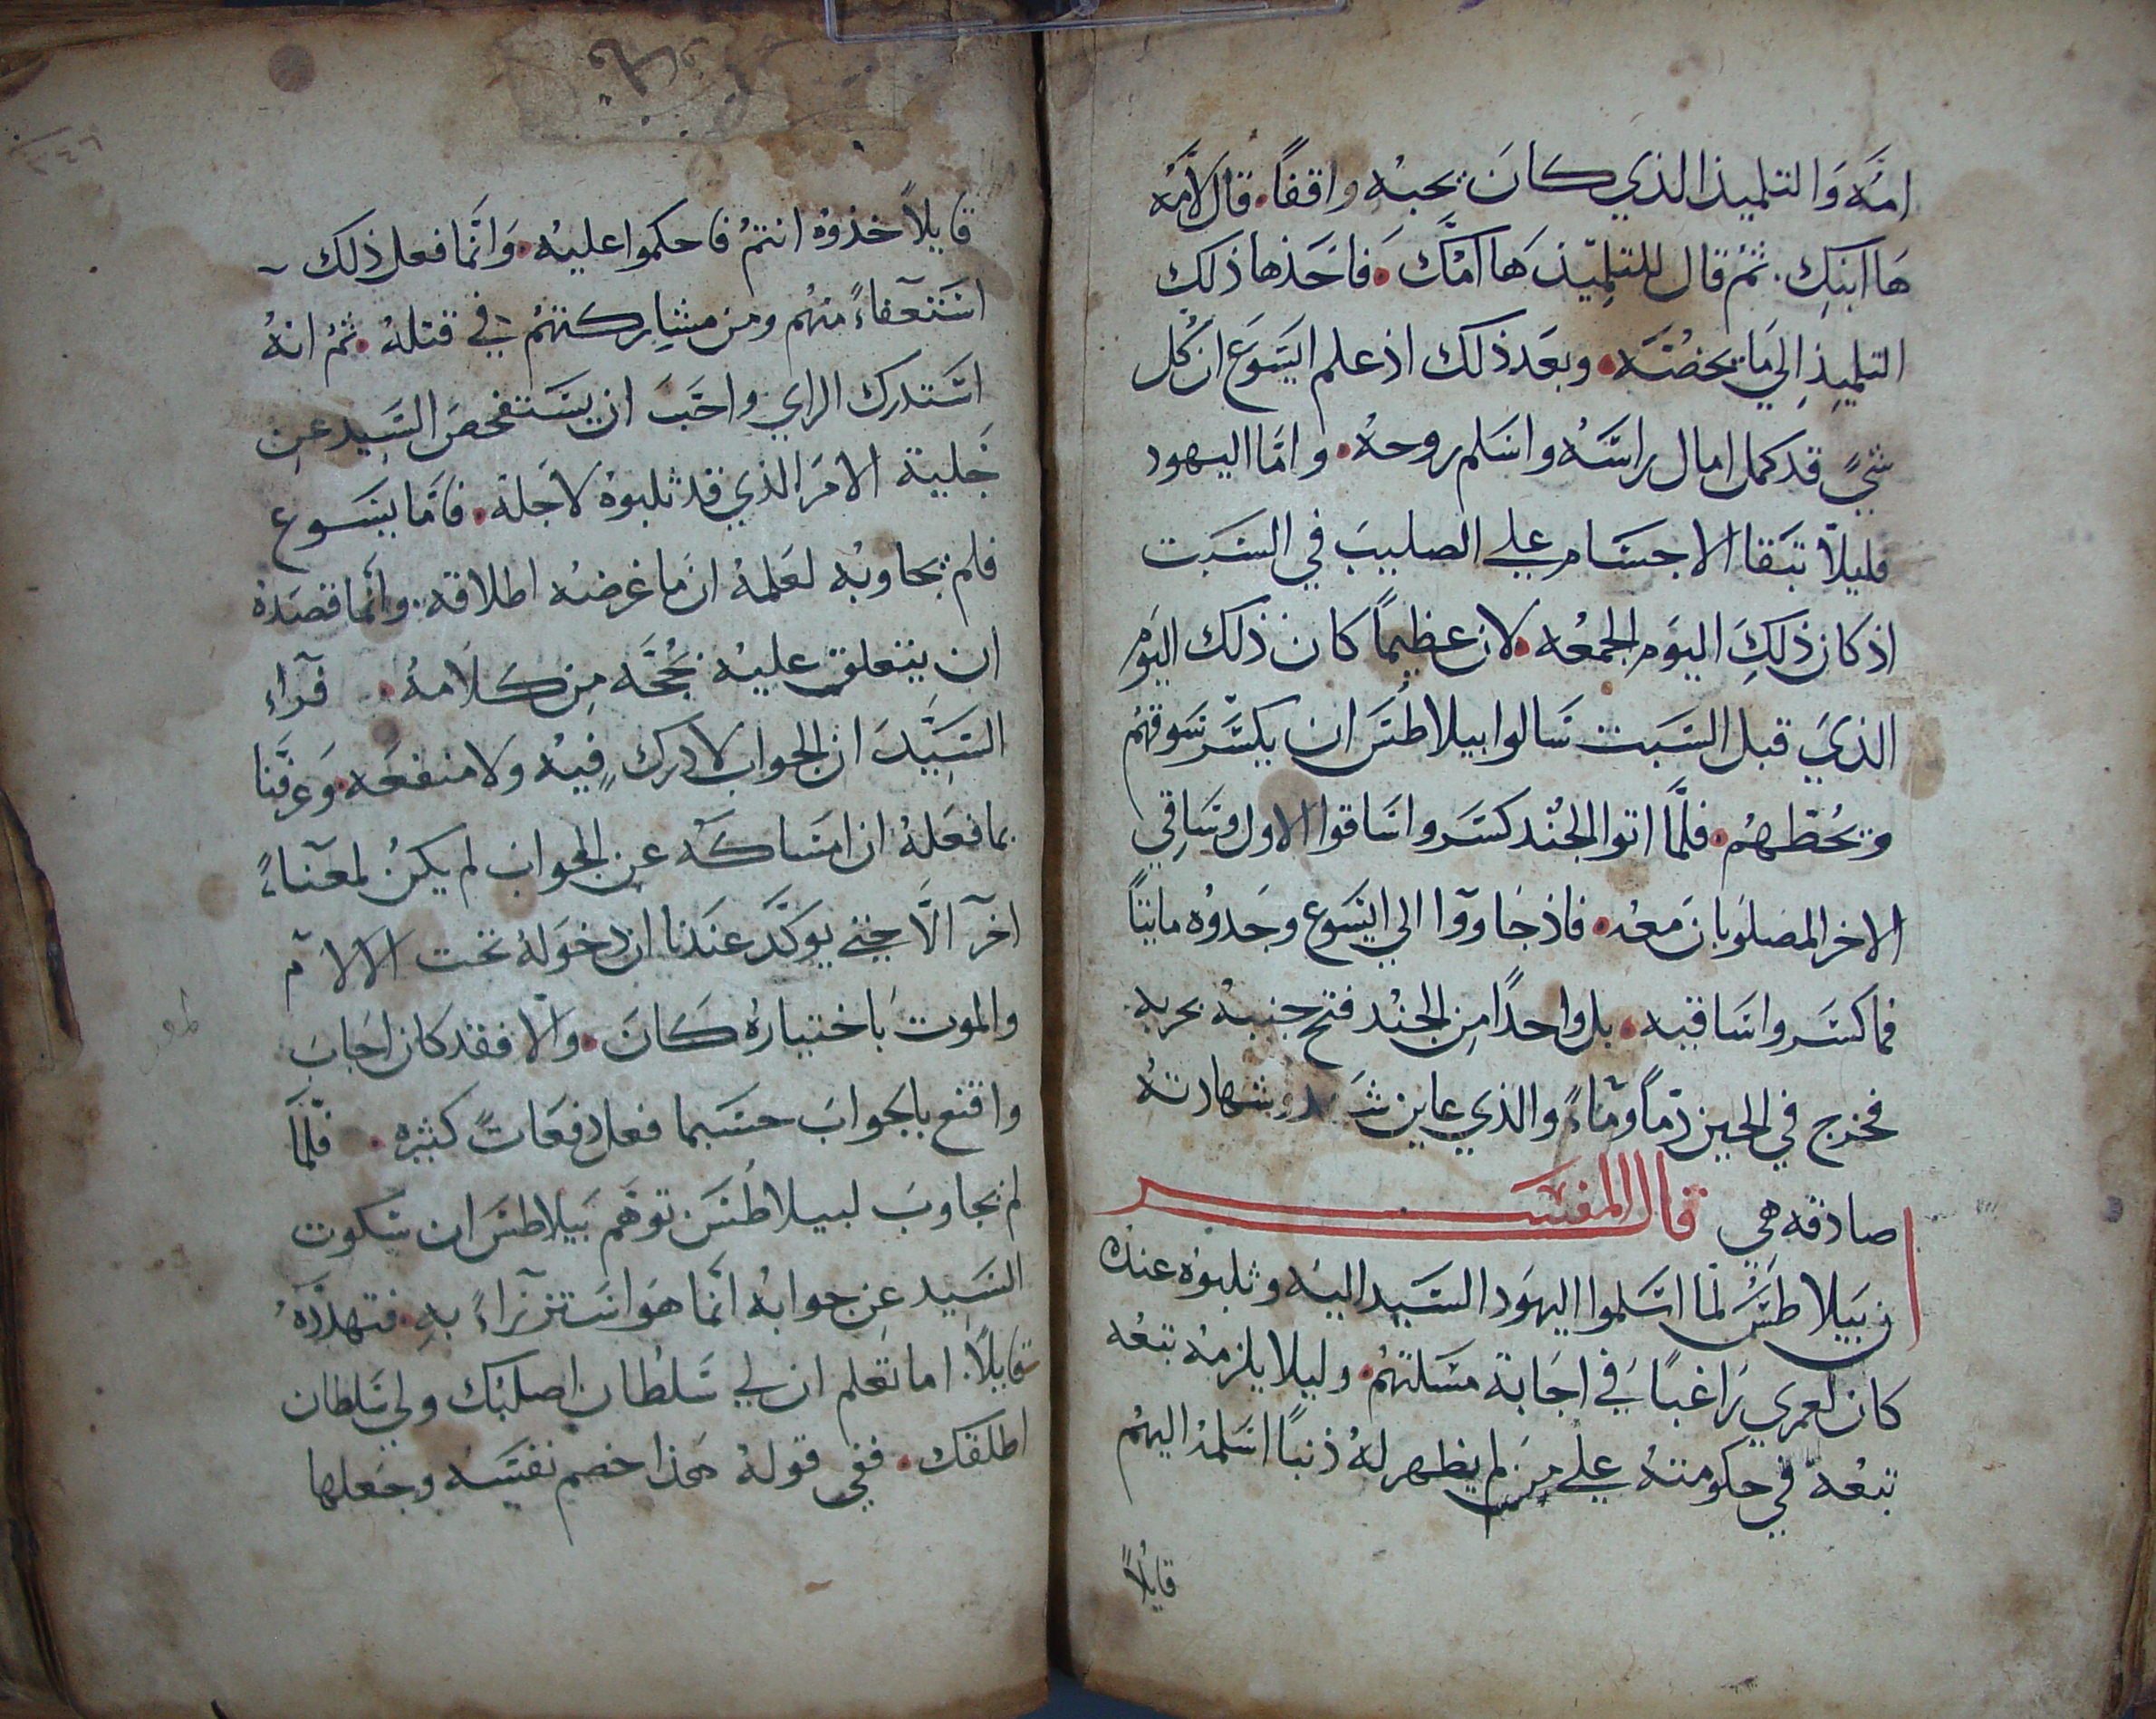 امّه وَالتلميذ الذي كانَ يحبهُ واقفاً. قال لاُمّه
هَا ابنكِ. ثمُ قال للتلِميّذ هَا امّك. فاخَذها ذلكِ
التلميِذِ الِي مَا يخصُّه. وبعَد ذلك اذ علم ايسَوعَ ان كُل
شيً قد كمل امال راسَهُ واسَلم روحهُ. وامّا اليهود
فليلاّ تبَقا الاجسَام علي الصليبَ في السَبَت
اذ كان ذلكِ اليوَم الجمعُه. لان عظيماً كان ذلك اليوَم
الذيَ قبل السَبَت سَالوا بيلاطُسَ ان يكسَّر سَوقهُم
ويحُطّهُم. فلّما اتوا الجنُد كسَروا سَاقوا الاول وسَاقِي
الاخر المصَلوَبانَ معُه. فاذ جَاووا الي ايسَوع وجَدوُه مايتاً
فما كسَروا سَاقيه. بل واحداً مِن الجنُد فتح جنبهُ بحربه
فخرج في الحين دَماً ومَاءً والذي عاين شَهد وشهادتهُ
صادقه هِي قال المفسَر
ان بيَلاطسَ لمّا اسَلموا اليهوَد السَيد اليهَ وثلبوُه عندهُ
كان لعمري رَاغباً في اجَابة مسَلتهُم. وليلا يلزمهُ تبعُه
تبعُه في حكومتهُ علي مِن لم يظهر لهُ ذنباً اسَلمهُ اليهُم
قايُلاً
قايلاً خذوُه انتمُ فاحكموا عليهُ. وَانّما فعل ذلك
اسَتعفاءً منهُم ومن مشاركتهُم في قتلهُ. ثمُ انهُ
اسَتدرك الراي واحَبَ ان يسَتفحصَ السَيد عِن
جَلية الامَر الذي قد ثلبوهُ لاجَلهُ. فامّا يسَوع
فلم يجاوبُه لعَلمهُ ان مَا غرضهُ اطلاقه. وانّما قصَدهُ
ان يتعلق عليهُ بحُجّه مِن كلاَمهُ. فرآء
السَيِّدَ ان الجواب لا دَرك فِيهُ ولا منفعَه. وَعرفَّنا
بما فعَلهُ ان امسَاكَه عِن الجواب لم يكنُ لمعَناءً
اخَر الّا حتي يوكّدَ عندَنا ان دخوَلهُ تحت الالاَم
والموت بَاختيارهُ كَانَ. والّا فقد كان اجَابَ
واقنع بالجَوابَ حسَبما فعل دفعَاتً كثيره. فلّما
لم يجاوبَ لبيلاطُسَ توهّم بَيلاطسَ ان سَكوت
السَيِد عِن جوابهُ انّما هوَ اسَتزرَآءً بهِ. فتهدّدَهُ
قايلاً. اما تعَلم ان لي سَلطُان اصلبَك ولي سَلطان
اطلقك. ففي قولهُ هَذا خصم نفسَه وجَعلها